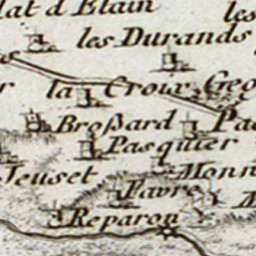 lat d'Blain
les
les Durands
la Croix
Broſsard
Pasquier
Jeuset
Favre
Reparon